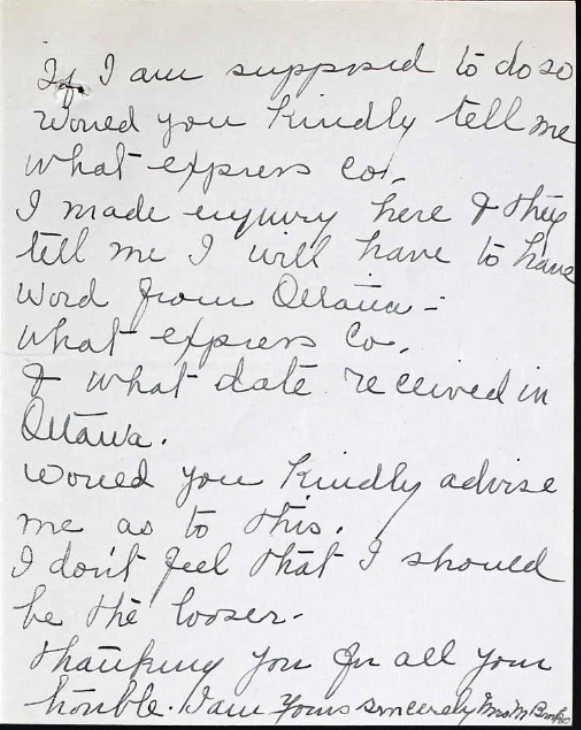 If I am supposed to do so
Would you Kindly tell me
what express Co.,
I made enquiry here & they
tell me I will have to have
word from Ottawa -
what express Co.
& what date received in
Ottawa.
Would you Kindly advise
me as to this.
I don't feel that I should
be the looser-
Thanking you for all your
trouble. I am Yours sincerely Mrs M